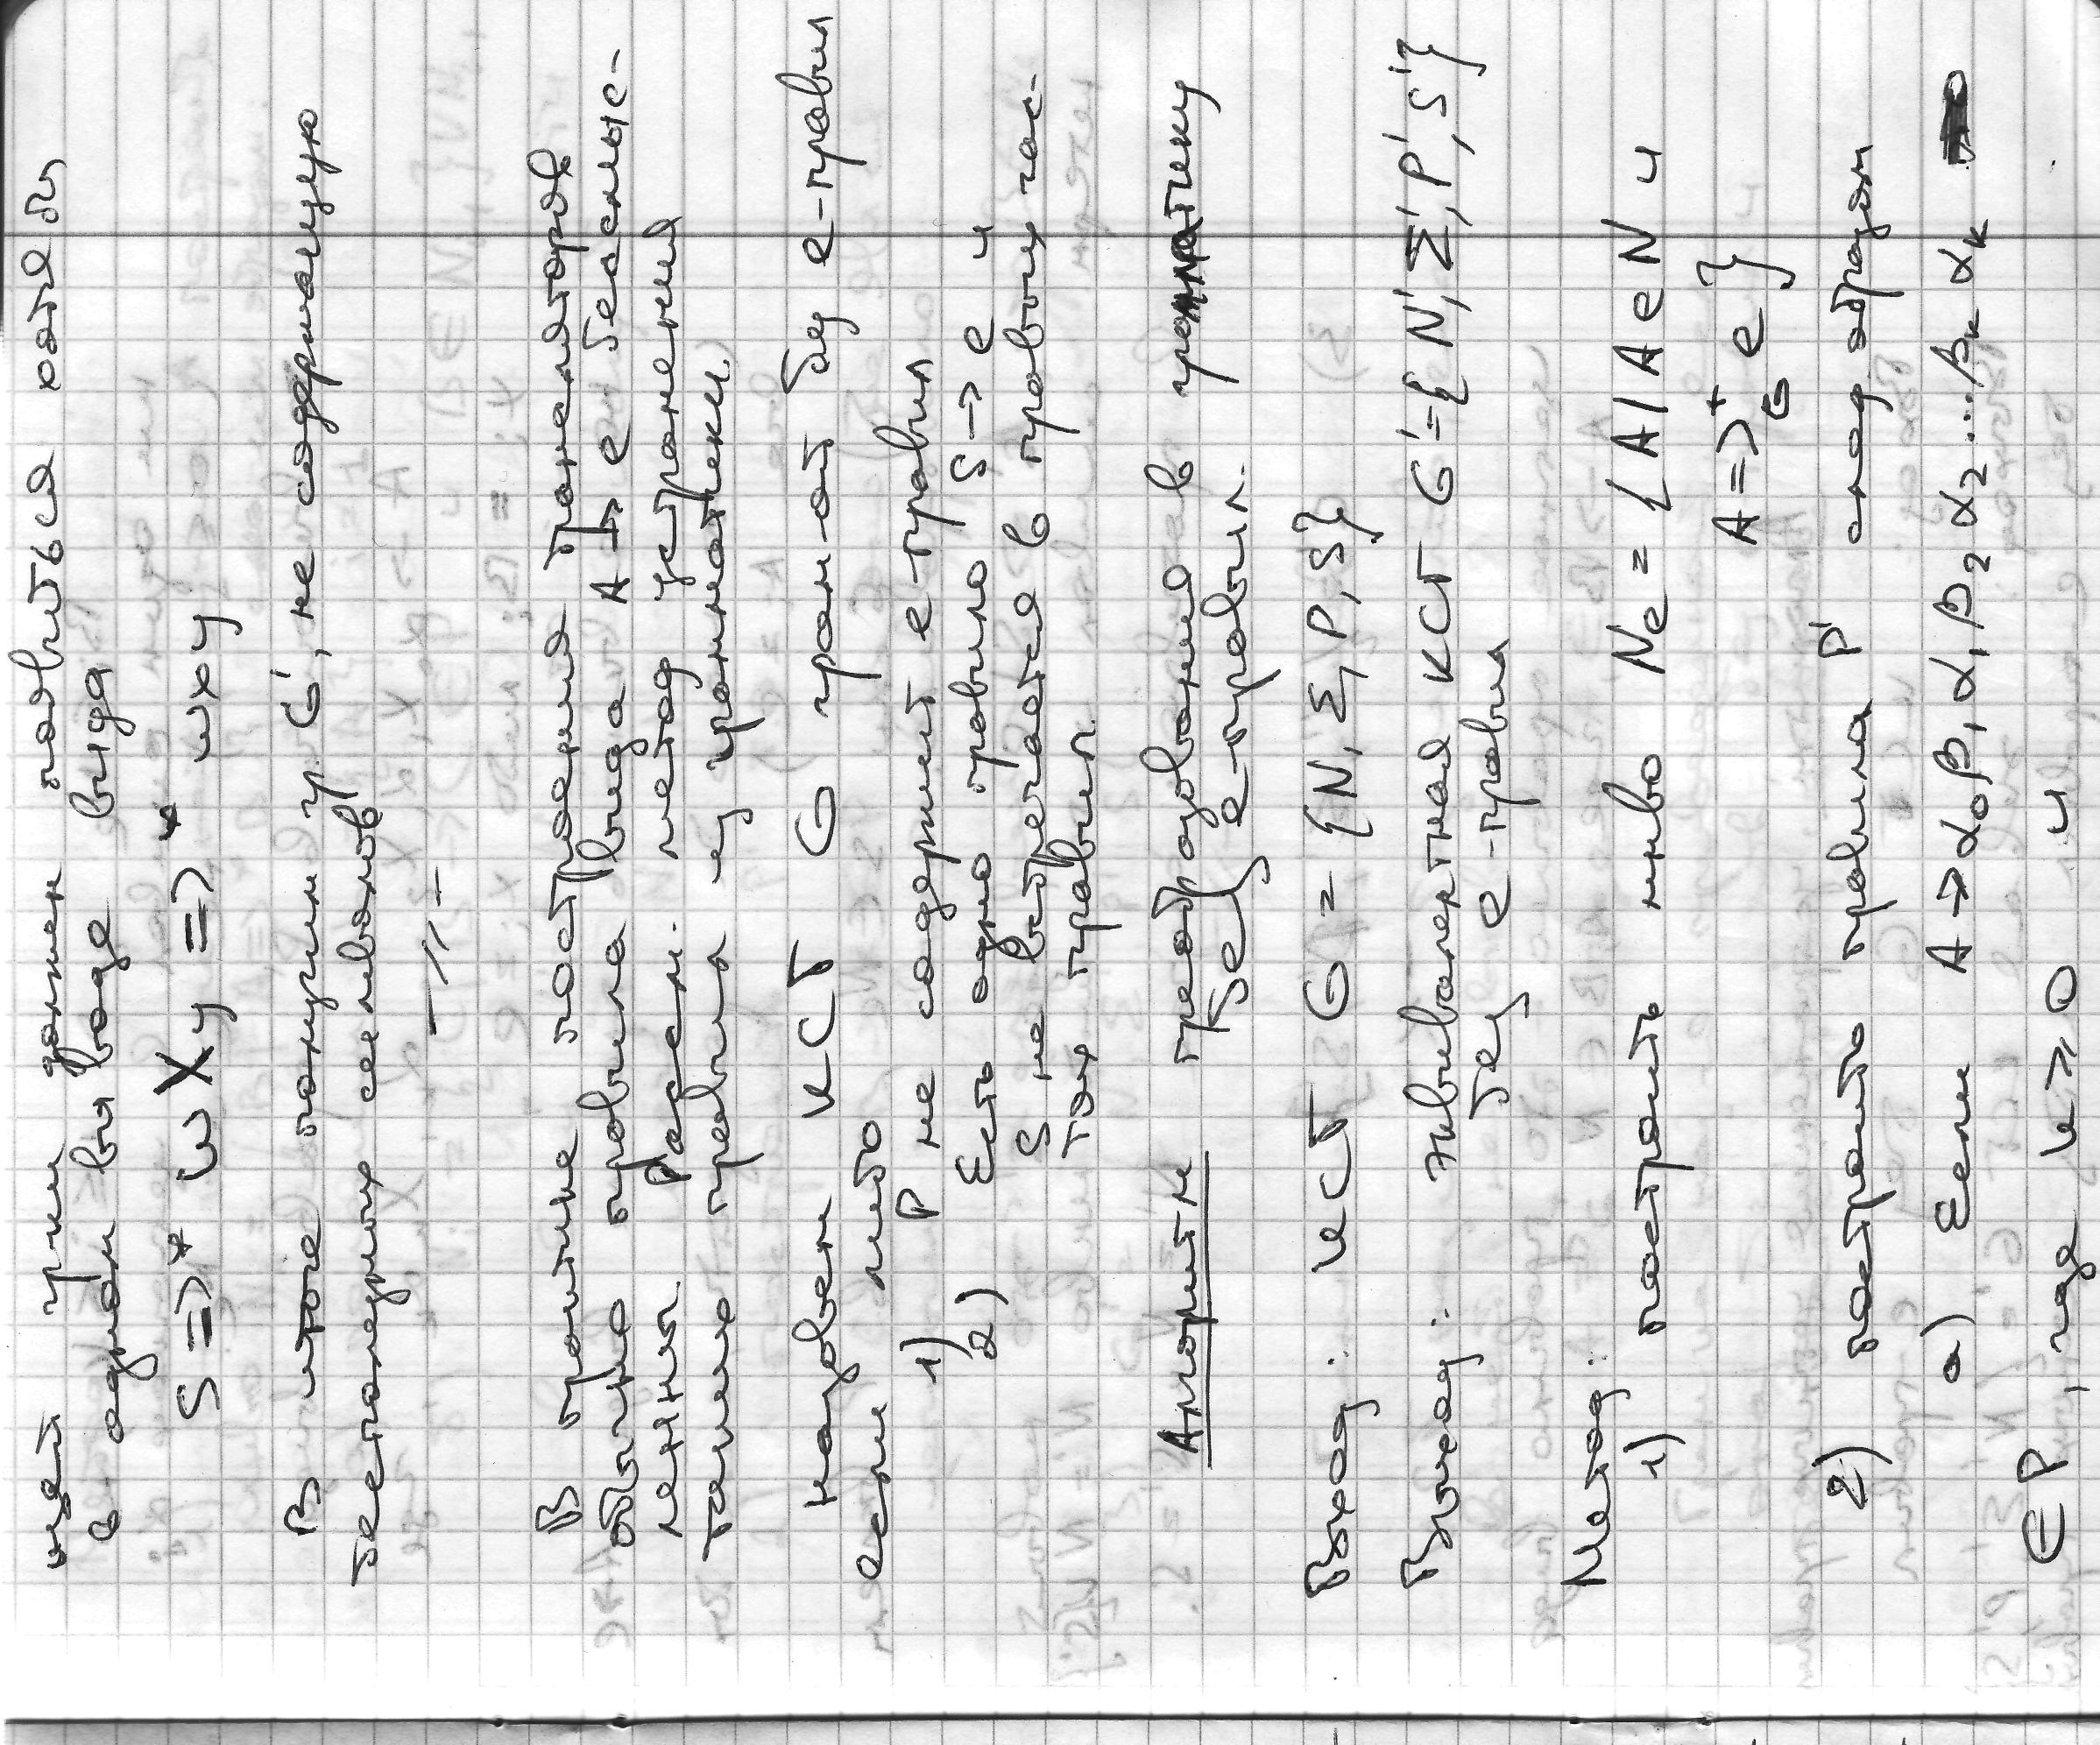 цей грам должен появиться хотя бы
в одном выводе вида
S =>* wXy =>* wxy
В итоге получим гр. G', не содержащую
бесполезных символов
-//-
В практике построения трансляторов
обычно правила вида A -> e бессмыс-
ленны. Рассм. метод устранения
таких правил из грамматики.
назовем КСГ G грам-ой без e-правил
если либо
1) P не содержит e-правил
2) Есть одно правило S -> e и
S не встречается в правых час-
тях правил.
Алгоритм преобразования в грамматику
без e-правил.
Вход: КСГ G = {N, Σ, P, S}
Выход: эквивалентная КСГ G'={N', Σ', P', S'}
без e-правил
Метод:
1) построить мн-во Ne = {A | A ∈ N и
A =>+G e}
2) построить правила P' след образом
а) Если A -> α0 β1 α1 β2 α2 ... βk αk
∈ P, где k ≥ 0 и